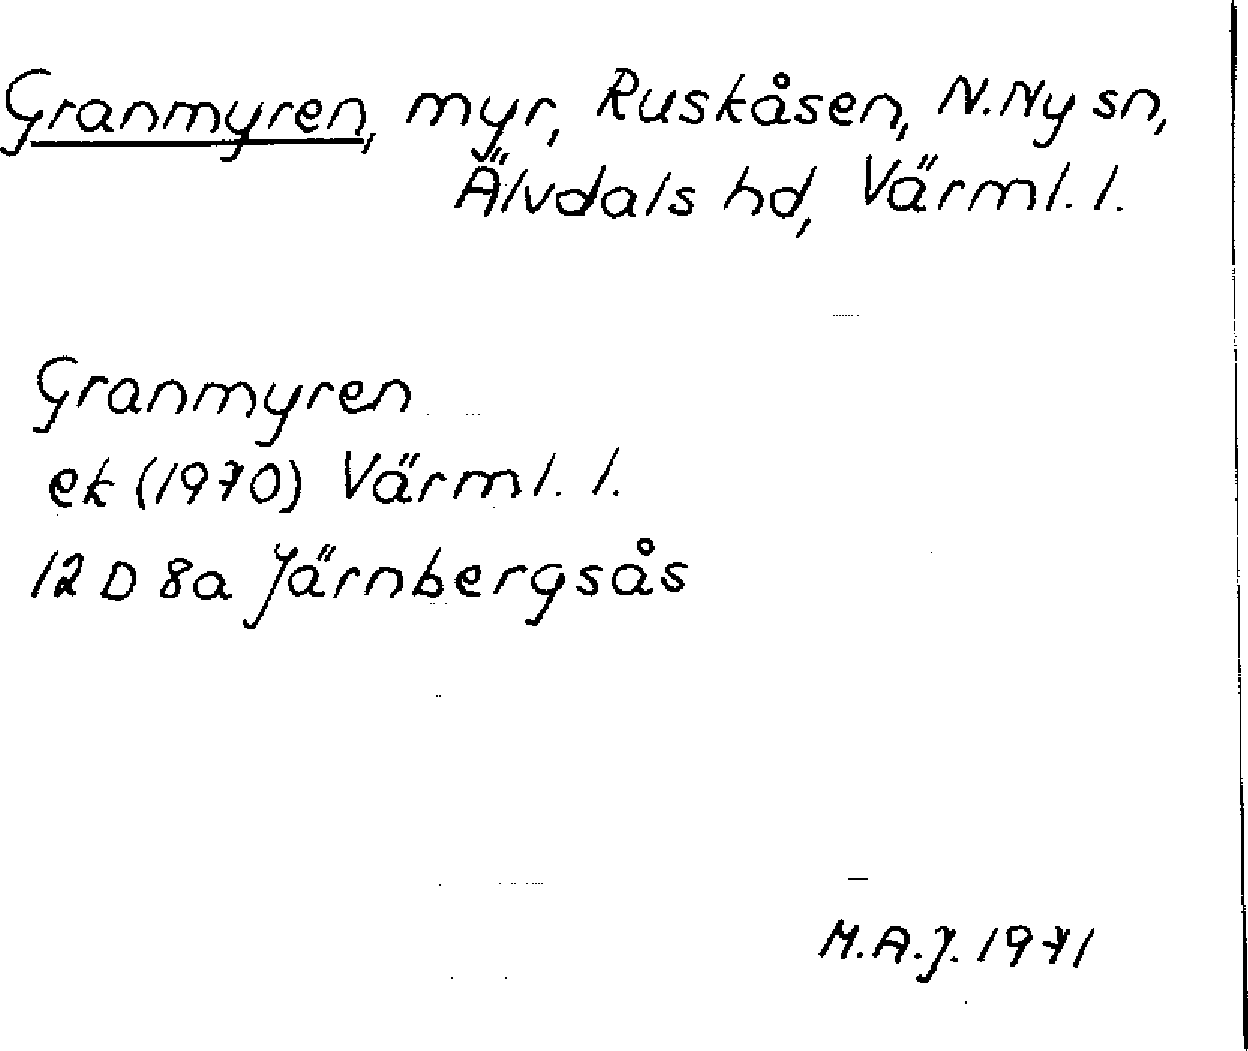 Granmyren, myr, Ruskåsen, N. Ny sn,
Älvdals hd, Värml. l.
Granmyren
ek (1970) Värml. l.
12 D 8a Järnbergsås
M.A.J. 1971